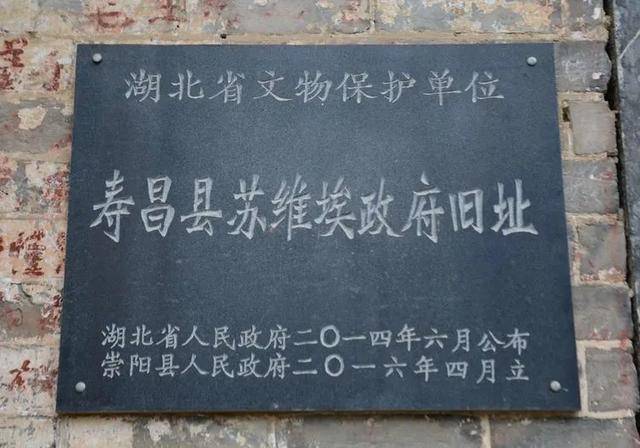 湖北省文物保护单位
寿昌县苏维埃政府旧址
湖北省人民政府二〇一四年六月公布
崇阳县人民政府二〇一六年四月立